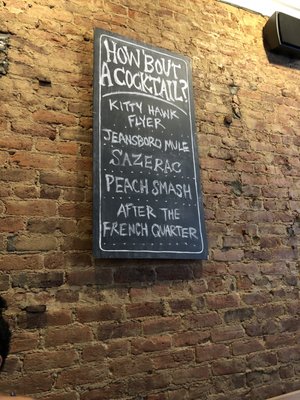 HOW 'BOUT
A COCKTAIL?
KITTY HAWK
FLYER
JEANSBORO MULE
SAZERAC
PEACH SMASH
AFTER THE
FRENCH QUARTER